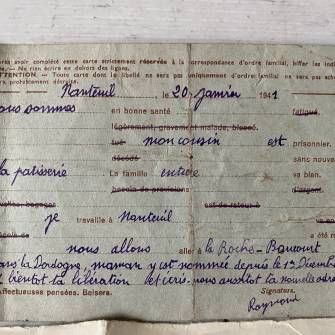 près avoir complété cette carte strictement réservée à la correspondance d'ordre familial, biffer les indic
— Ne rien écrire en dehors des lignes.
TTENTION. — Toute carte dont le libellé ne sera pas uniquement d'ordre familial ne sera pas ache
ra probablement détruite.
Nanteuil, le 20 janvier 1941
ous sommes en bonne santé fatigué.
légèrement, gravement malade, blessé.
tué mon cousin est prisonnier.
décédé sans nouve
La patisserie La famille entière va bien.
besoin de provisions d'argent
je travaille à Nanteuil
nous allons aller à la Roche-Beaucourt
ans la Dordogne, maman y est nommée depuis le 1er Décembre
bientôt la libération et écris-nous aussitôt ta nouvelle adre
Affectueuses pensées. Baisers. Signature.
Raymond